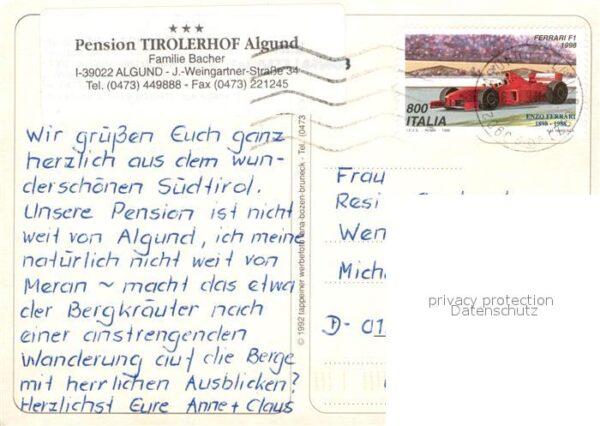 ★★★
Pension TIROLERHOF Algund
Familie Bacher
I-39022 ALGUND - J.-Weingartner-Straße 34
Tel. (0473) 449888 - Fax (0473) 221245
Wir grüßen Euch ganz
herzlich aus dem wun-
derschönen Südtirol.
Unsere Pension ist nicht
weit von Algund, ich meine
natürlich nicht weit von
Meran ~ macht das etwa
der Bergkräuter nach
einer anstrengenden
Wanderung auf die Berge
mit herrlichen Ausblicken?
Herzlichst Eure Anne + Claus
© 1992 tappeiner werbefoto lana-bozen-bruneck - Tel. (0473
FERRARI F1
1998
800
ITALIA
ENZO FERRARI
1898 - 1988
Frau
Resi
Wen
Mich
D-01
privacy protection
Datenschutz